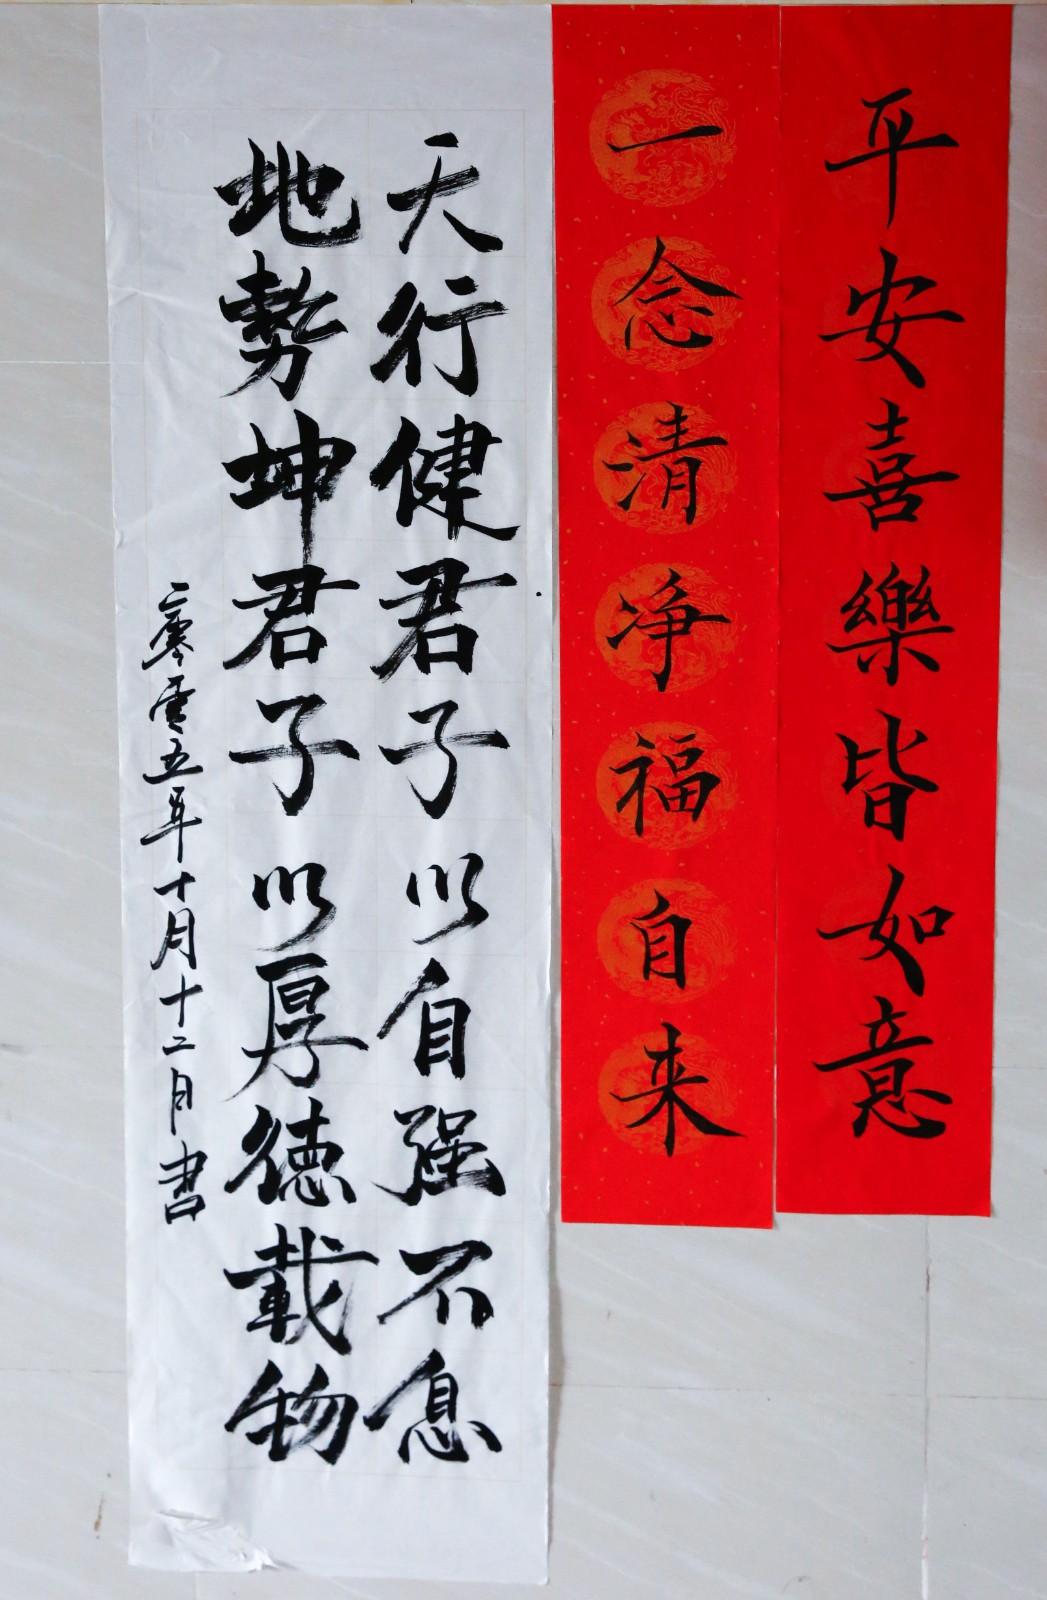 平安喜樂皆如意
一念清净福自来
天行健君子以自强不息
地勢坤君子以厚德載物
二零零五年十月十二日書